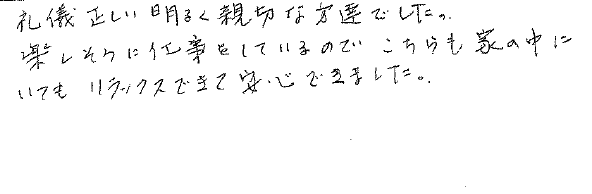 礼儀正しい明るく親切な方達でした。
楽しそうに仕事をしているので こちらも家の中に
いても リラックスできて安心できました。